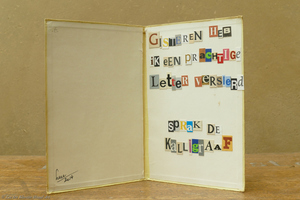 GISTEREN HEB
iK EEN PRACHTIGE
LETTER VERSIERD
SPRAK DE
KALLIGRAAF